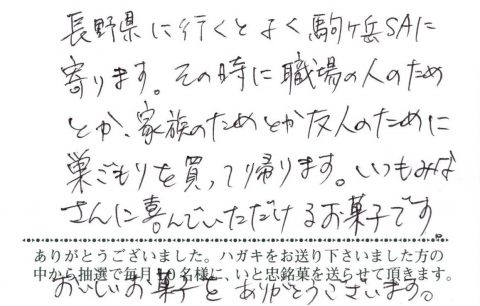 長野県に行くとよく駒ヶ岳SAに
寄ります。その時に職場の人のため
とか、家族のためとか友人のために
巣ごもりを買って帰ります。いつもみな
さんに喜んでいただけるお菓子です。
ありがとうございました。ハガキをお送り下さいました方の
中から抽選で毎月10名様に、いと忠銘菓を送らせて頂きます。
おいしいお菓子を ありがとうございます。